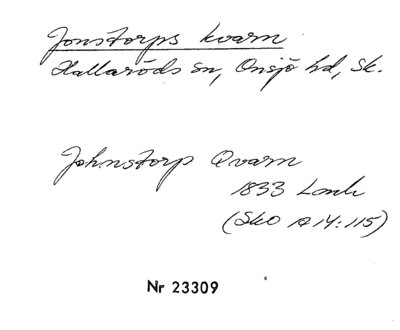 Jonstorps kvarn
Hallaröds sn, Onsjö hd, Sk.
Johnstorp Qvarn
1833 Lantm
(Sko A 14:115)
Nr 23309